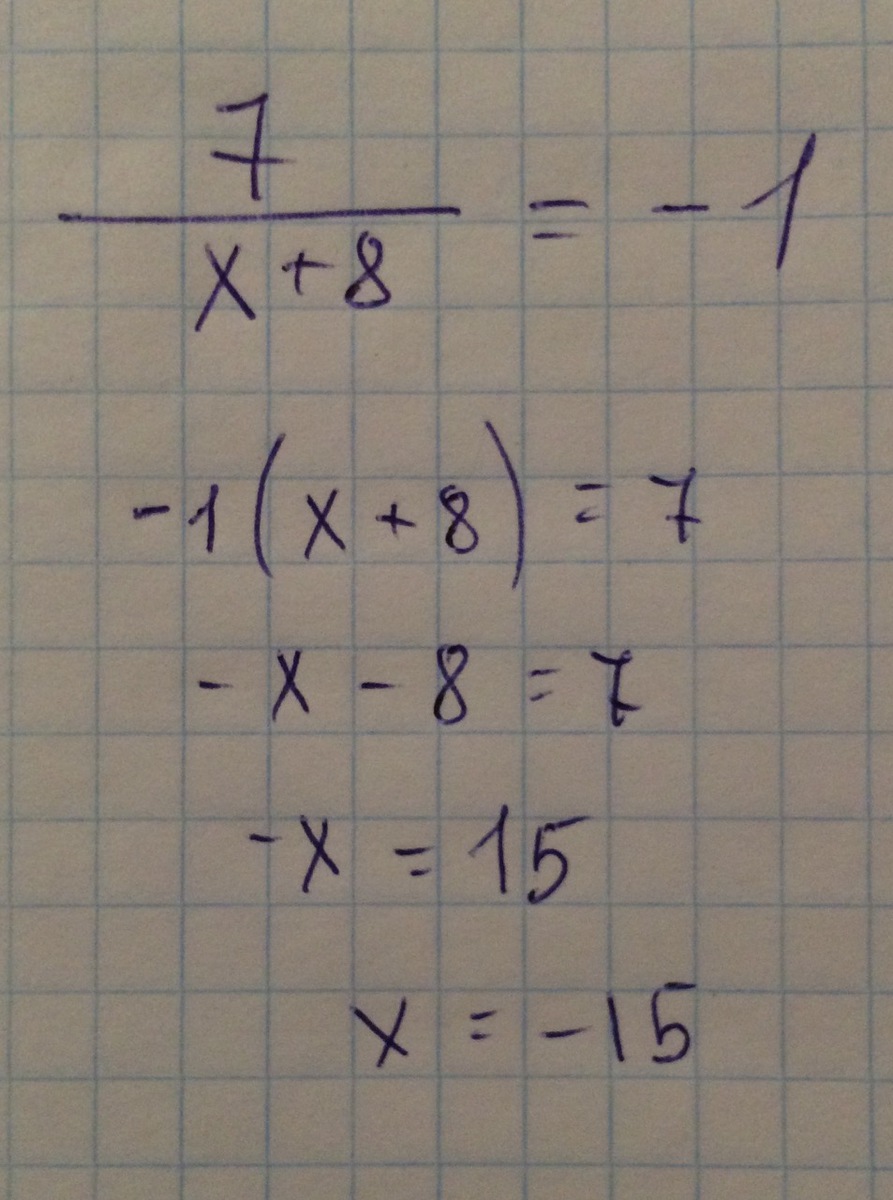 7
x+8 = -1
-1(x+8) = 7
-x-8 = 7
-x = 15
x = -15